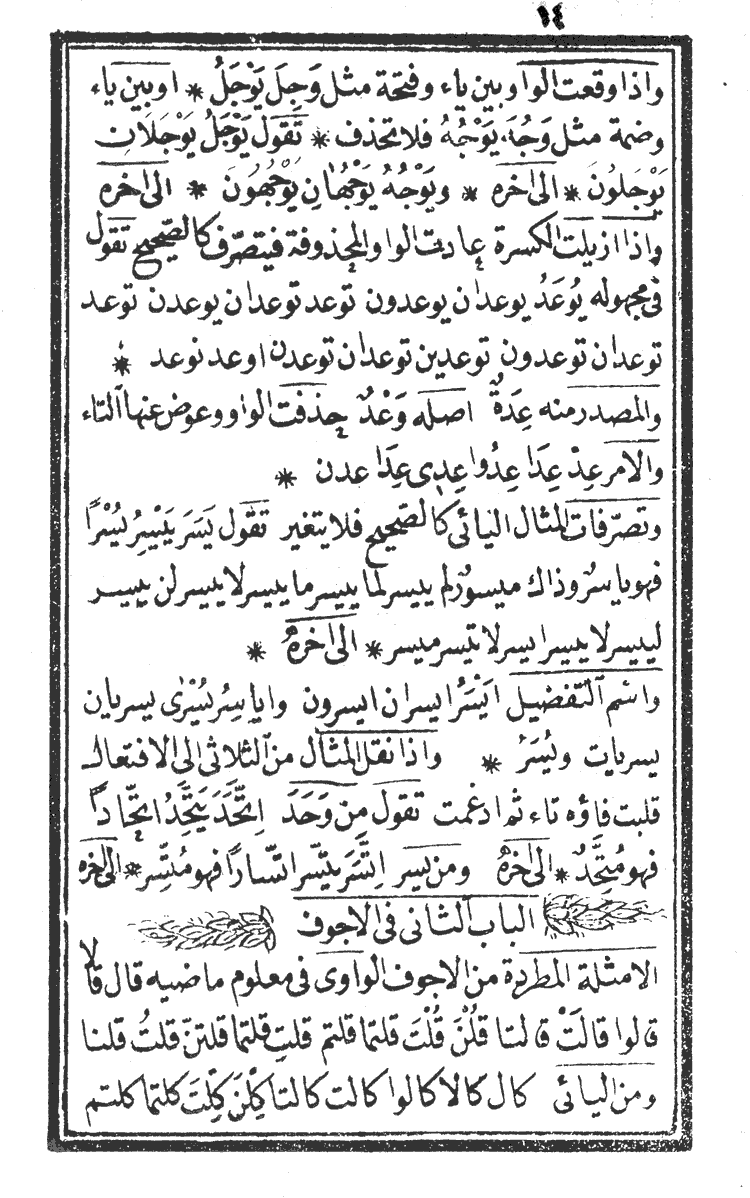 ١٤
واذا وقعت الواو بين ياء وفتحة مثل وَجِلَ يَوْجَلُ * او بين ياء
وضمة مثل وَجُهَ يَوْجُهُ فلا تحذف * تقول يَوْجَلُ يَوْجَلَانِ
يَوْجَلُونَ * الى اخره * ويَوْجُهُ يَوْجُهَانِ يَوْجُهُونَ * الى اخره
واذا ازيلت الكسرة عادت الواو المحذوفة فيتصرّف كالصّحيح تقول
فى مجهوله يُوعَدُ يوعدان يوعدون توعد توعدان يوعدن توعد
توعدان توعدون توعدين توعدان توعدن اوعد نوعد *
والمصدر منه عِدَةٌ اصله وَعْدٌ حذفت الواو وعوض عنها التاء
والامر عِدْ عِدَا عِدُوا عِدِى عِدَا عدن *
وتصرّفات المثال اليائى كالصّحيح فلا يتغير تقول يَسَرَ يَيْسِرُ يُسْرًا
فهو ياسرٌ وذاك ميسورٌ لم ييسر لما ييسر ما ييسر لا ييسر لن ييسر
لييسر لا ييسر ايسر لا تيسر ميسر * الى اخرهٌ *
واسم التفضيل اَيْسَرُ ايسران ايسرون واياسِرُ يُسْرٰى يسريان
يسريات ويُسَرٌ * واذا نقل المثال من الثلاثى الى الافتعال
قلبت فاؤه تاء ثم ادغمت تقول من وَحَدَ اِتَّحَدَ يَتَّحِدُ اتّحادًا
فهو مُتَّحِدٌ الى اخرهٌ * ومن يسر اِتَّسَرَ يتّسر اتّسارًا فهو متّسر * الى اخره
الباب الثانى فى الاجوف
الامثلة المطردة من الاجوف الواوى فى معلوم ماضيه قال قالا
قالوا قالَتْ قالتا قُلْنَ قُلْتَ قلتما قلتم قلتِ قلتما قلتنّ قلتُ قلنا
ومن اليائى كال كالا كالوا كالت كالتا كِلْنَ كِلْتَ كلتما كلتم